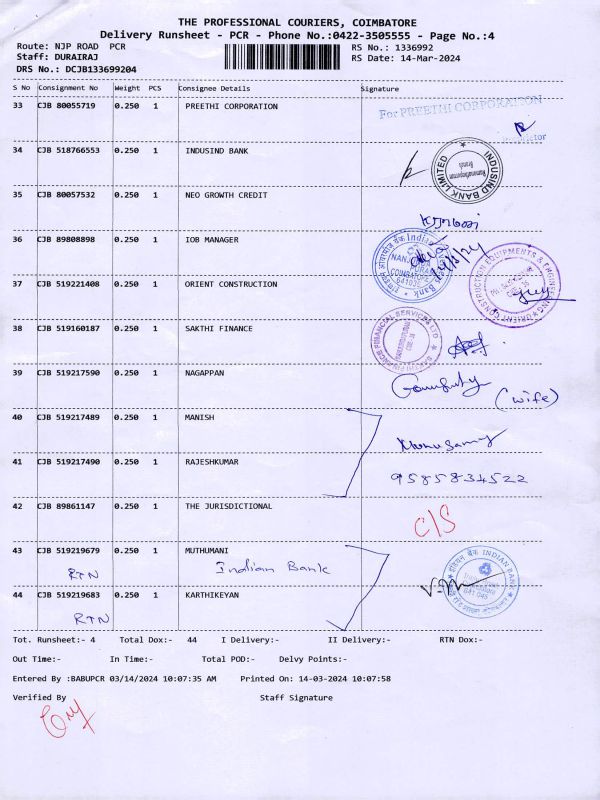 THE PROFESSIONAL COURIERS, COIMBATORE
Delivery Runsheet - PCR - Phone No.:0422-3505555 - Page No.:4
Route: NJP ROAD PCR
RS No.: 1336992
Staff: DURAIRAJ
RS Date: 14-Mar-2024
DRS No.: DCJB133699204
S No Consignment No Weight PCS Consignee Details Signature
33 CJB 80055719 0.250 1 PREETHI CORPORATION
For PREETHI CORPORATION
34 CJB 518766553 0.250 1 INDUSIND BANK
INDUSIND BANK LIMITED
35 CJB 80057532 0.250 1 NEO GROWTH CREDIT
36 CJB 89808898 0.250 1 IOB MANAGER
37 CJB 519221408 0.250 1 ORIENT CONSTRUCTION
ORIENT CONSTRUCTION EQUIPMENTS & ENGINEERING
38 CJB 519160187 0.250 1 SAKTHI FINANCE
SAKTHI FINANCE FINANCIAL SERVICES LTD
39 CJB 519217590 0.250 1 NAGAPPAN
(wife)
40 CJB 519217489 0.250 1 MANISH
41 CJB 519217490 0.250 1 RAJESHKUMAR
9585834522
42 CJB 89861147 0.250 1 THE JURISDICTIONAL
C/S
43 CJB 519219679 0.250 1 MUTHUMANI
RTN Indian Bank
INDIAN BANK
44 CJB 519219683 0.250 1 KARTHIKEYAN
RTN
Tot. Runsheet:- 4 Total Dox:- 44 I Delivery:- II Delivery:- RTN Dox:-
Out Time:- In Time:- Total POD:- Delvy Points:-
Entered By :BABUPCR 03/14/2024 10:07:35 AM Printed On: 14-03-2024 10:07:58
Verified By Staff Signature